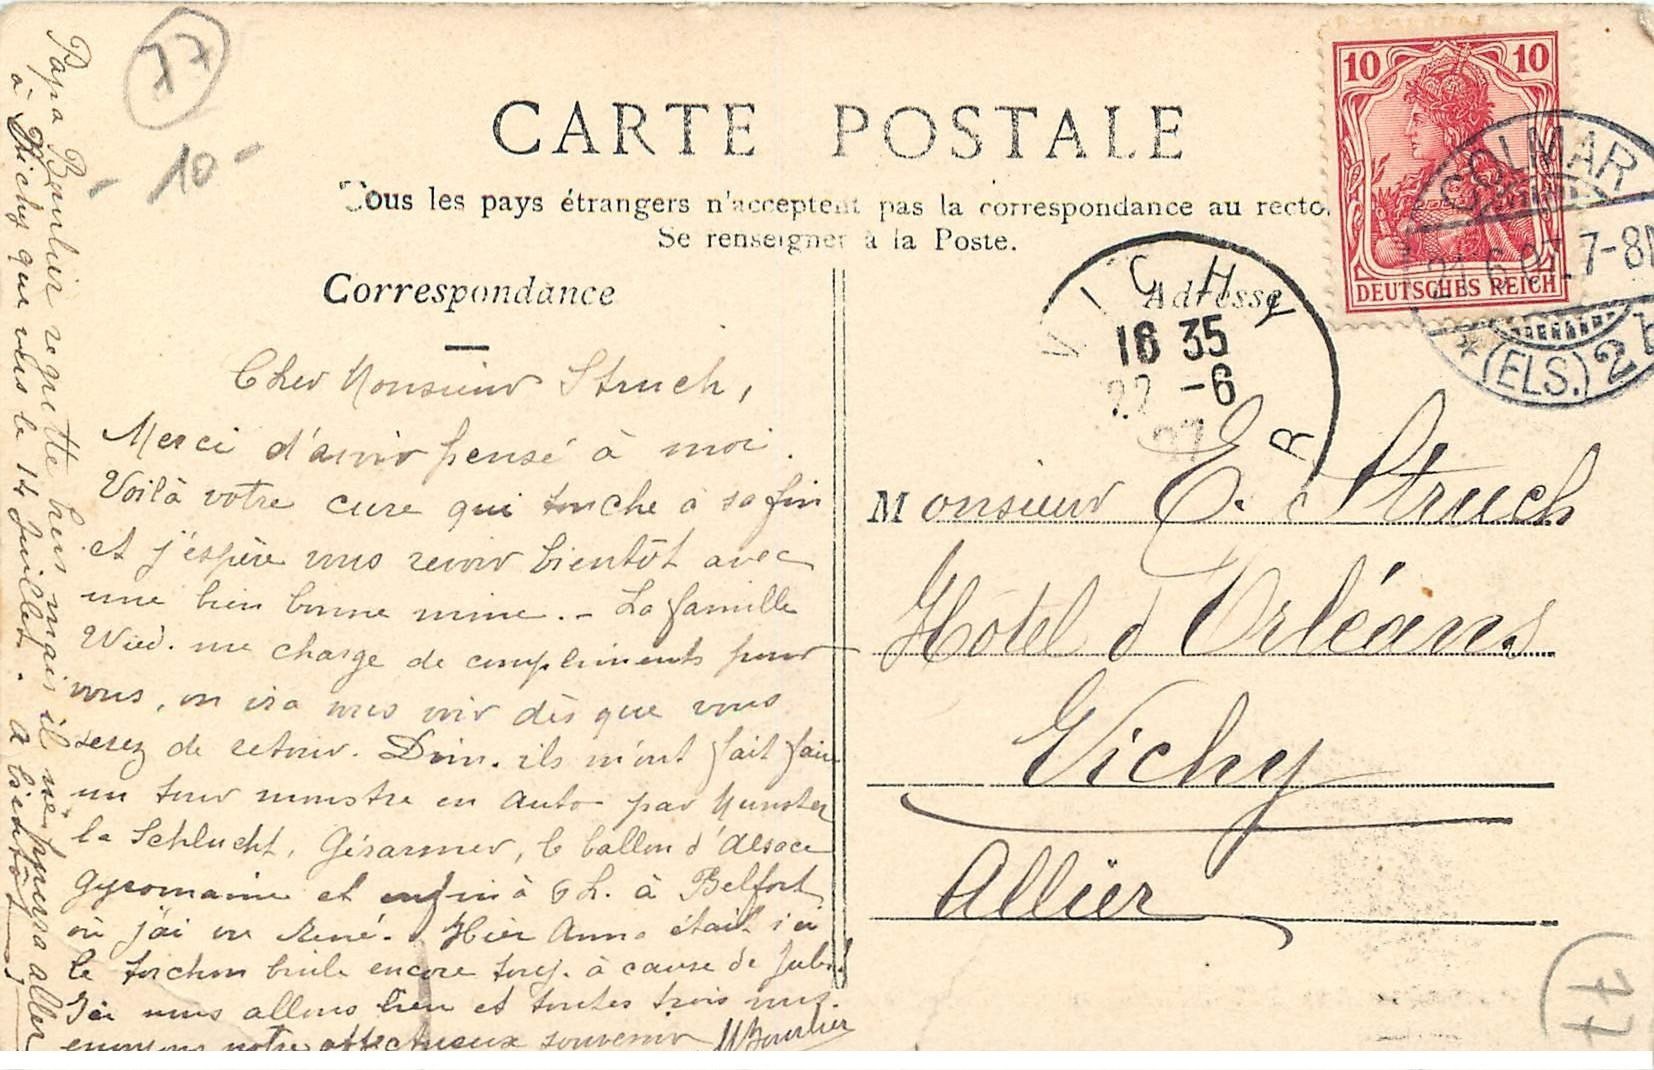 77
- 10 -
CARTE POSTALE
Tous les pays étrangers n'acceptent pas la correspondance au recto.
Se renseigner à la Poste.
Correspondance
Adresse
10 10
DEUTSCHES REICH
COLMAR
21.6.07. 7-8N
* (ELS.) 2 b
VICHY
16 35
22 -6
07
R
Cher Monsieur Struch,
Merci d'avoir pensé à moi.
Voilà votre cure qui touche à sa fin
et j'espère vous revoir bientôt avec
une bien bonne mine. - La famille
Wied. me charge de compliments pour
vous, on ira vous voir dès que vous
serez de retour. Dim. ils m'ont fait faire
un tour monstre en auto par Munster
la Schlucht, Gérarmer, le ballon d'Alsace
Gyromanie et enfin à 6 h. à Belfort
où j'ai vu René. Hier Anna était ici
le torchon brûle encore touj. à cause de
Ici nous allons bien et toutes trois vous
envoyons notre affectueux souvenir
Papa regrette bien mais il ne pourra aller
à Vichy que vers le 14 Juillet. A bientôt!
Monsieur E. Struch
Hôtel d'Orléans
Vichy
Allier
77